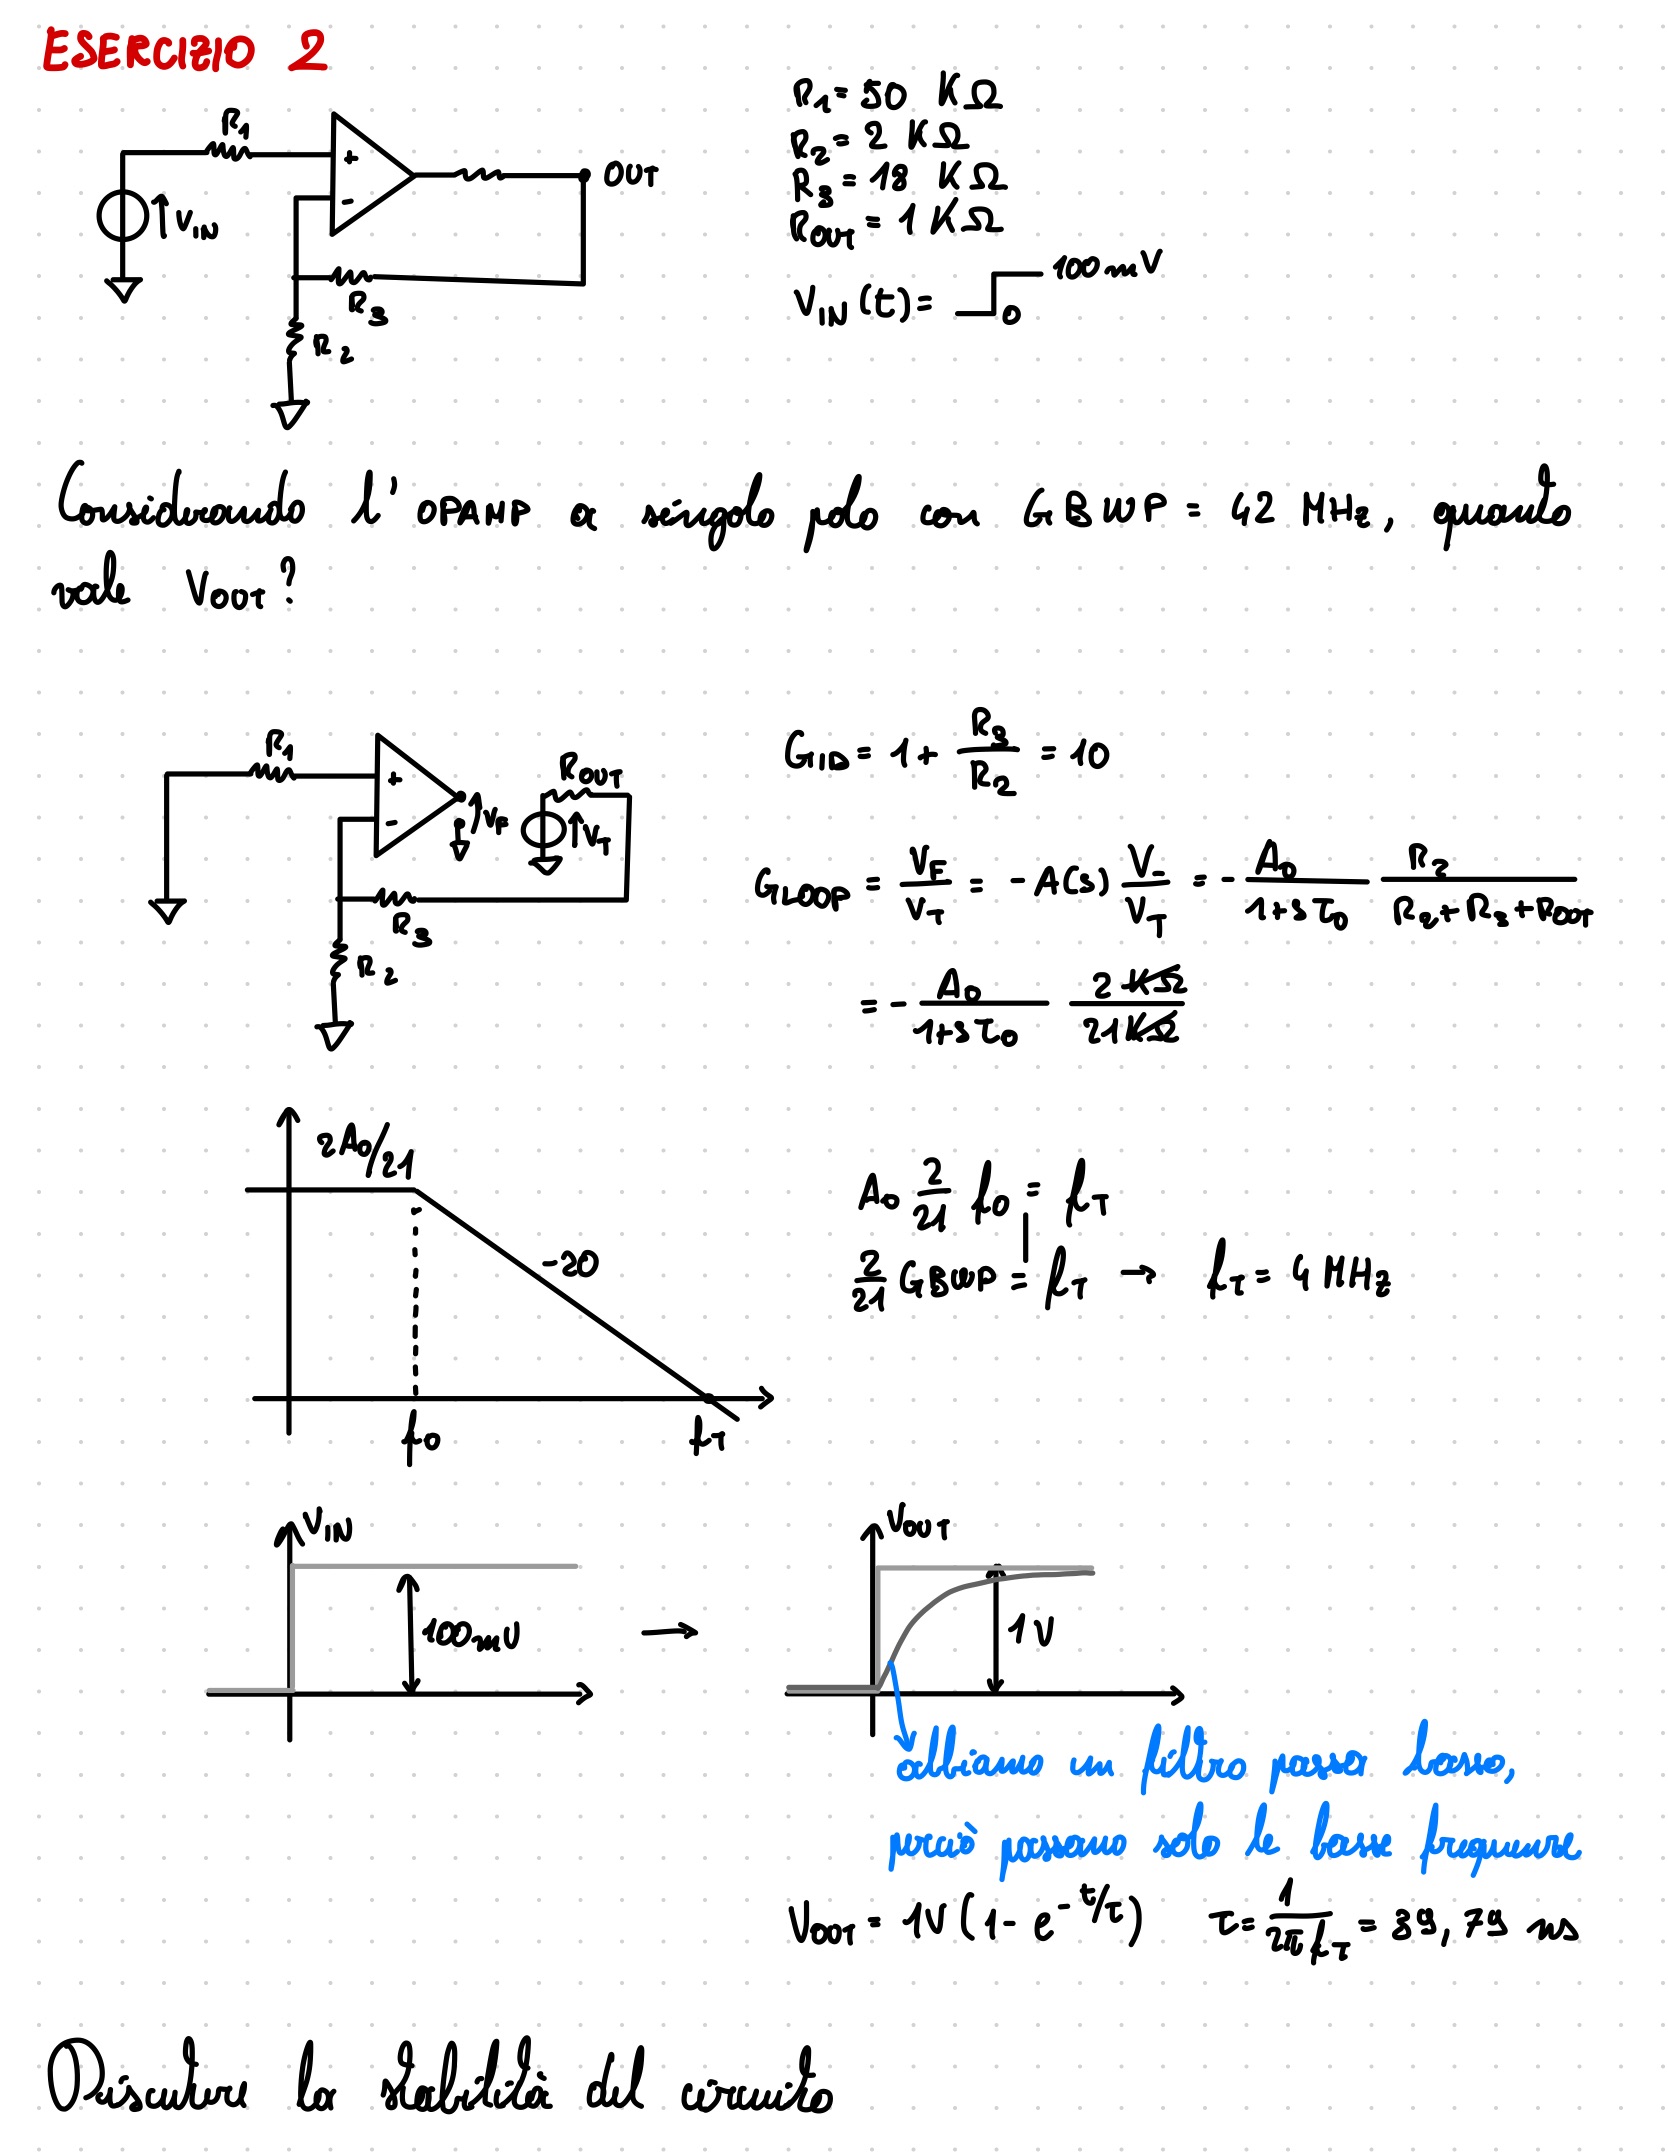 ESERCIZIO 2
R1
+
-
OUT
VIN
R3
R2
R1 = 50 KΩ
R2 = 2 KΩ
R3 = 18 KΩ
ROUT = 1 KΩ
VIN (t) = 0 100 mV
Considerando l'OPAMP a singolo polo con GBWP = 42 MHz, quanto
vale VOUT?
R1
+
-
VF
ROUT
VT
R3
R2
GID = 1 + R3/R2 = 10
GLOOP = VF/VT = - A(s) V-/VT = - A0/(1+sτ0) R2/(R2+R3+ROUT)
= - A0/(1+sτ0) 2 KΩ/21 KΩ
2A0/21
-20
f0
fT
A0 2/21 f0 = fT
2/21 GBWP = fT → fT = 4 MHz
VIN
100 mV
→
VOUT
1 V
abbiamo un filtro passa basso,
perciò passano solo le basse frequenze
VOUT = 1V (1 - e^-t/τ) τ = 1/2πfT = 39,79 ns
Discutere la stabilità del circuito